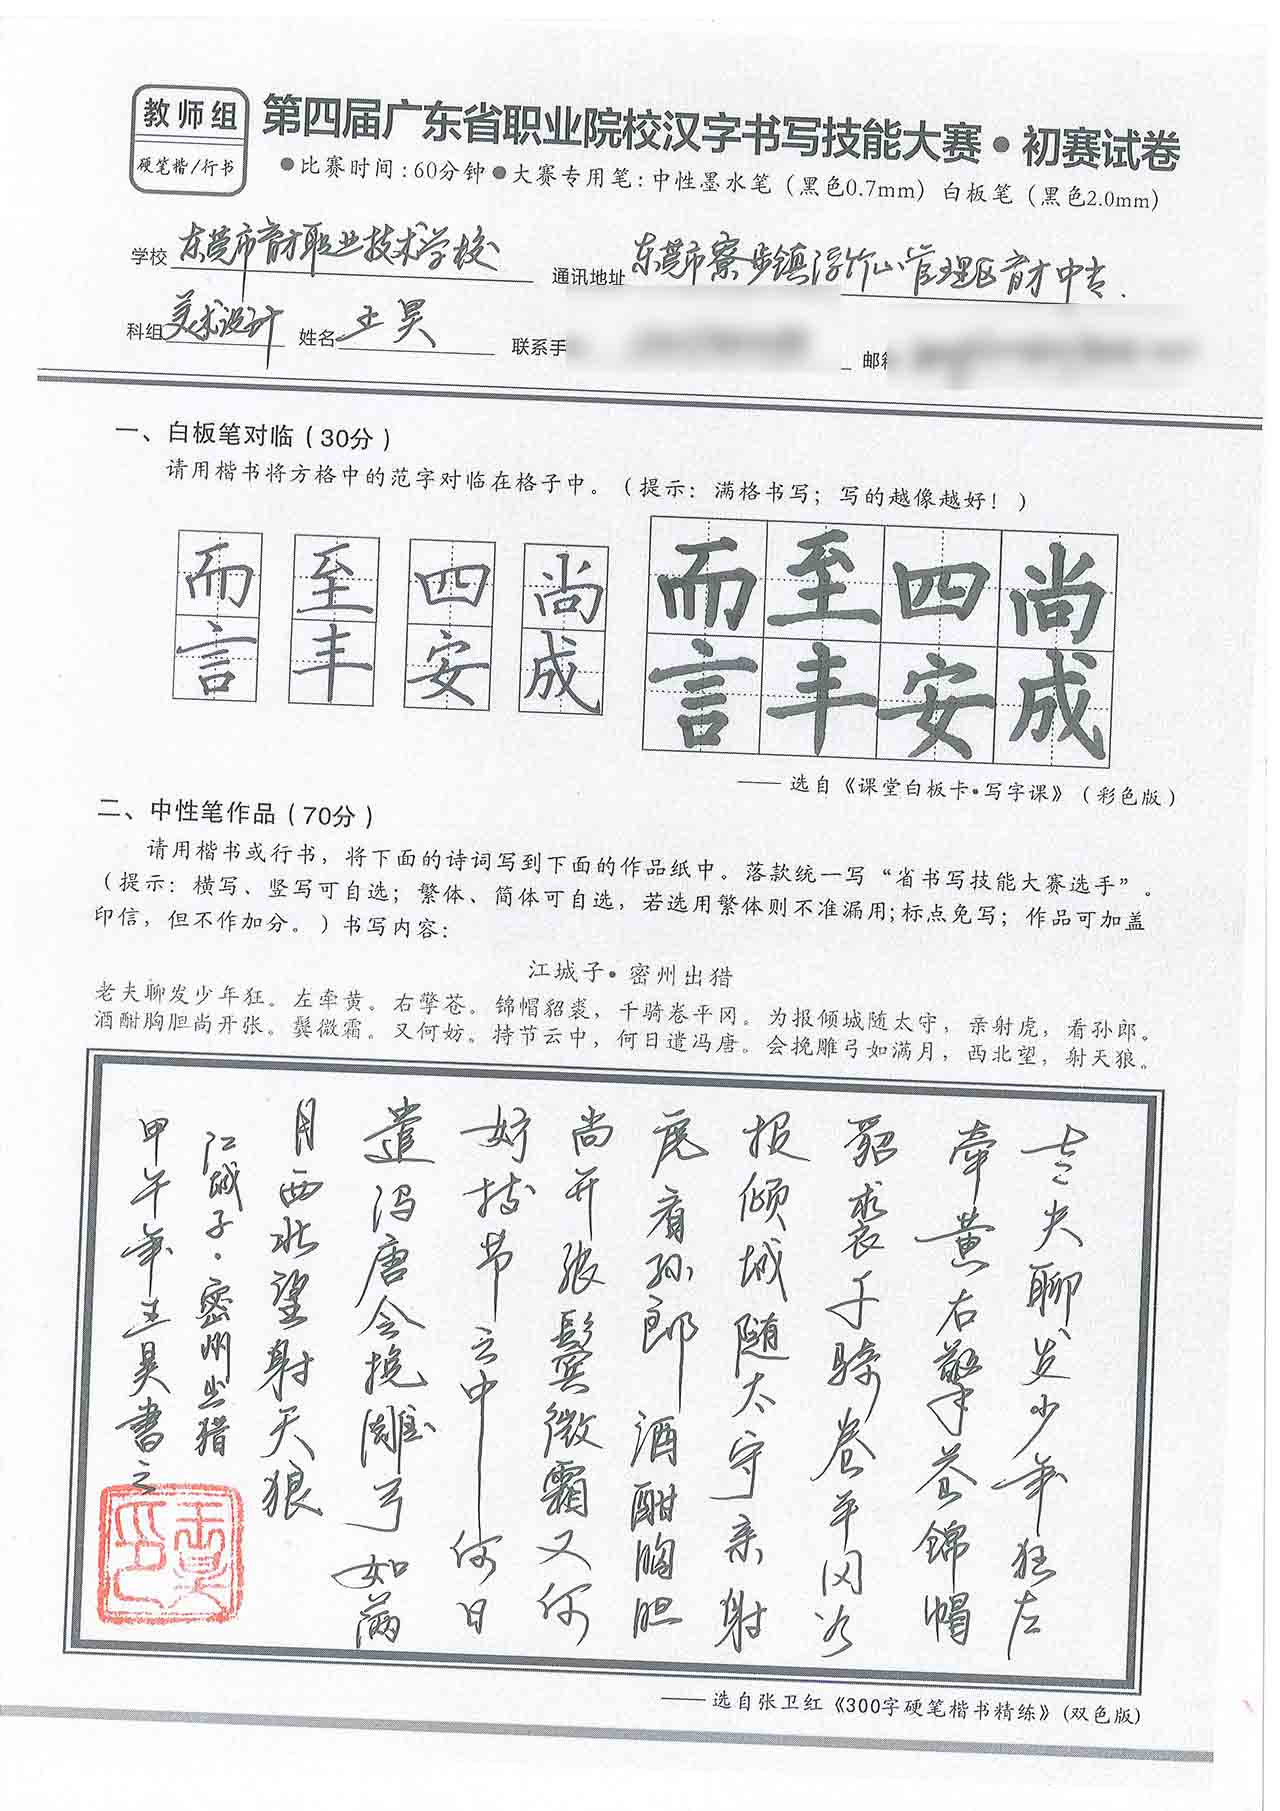 教师组
硬笔楷/行书
第四届广东省职业院校汉字书写技能大赛·初赛试卷
●比赛时间:60分钟●大赛专用笔:中性墨水笔（黑色0.7mm）白板笔（黑色2.0mm）
学校 东莞市育才职业技术学校 通讯地址 东莞市寮步镇浮竹山管理区育才中专.
科组 美术设计 姓名 王昊 联系手 邮
一、白板笔对临（30分）
请用楷书将方格中的范字对临在格子中。（提示：满格书写；写的越像越好！）
而 至 四 尚 而 至 四 尚
言 丰 安 成 言 丰 安 成
——选自《课堂白板卡•写字课》（彩色版）
二、中性笔作品（70分）
请用楷书或行书，将下面的诗词写到下面的作品纸中。落款统一写“省书写技能大赛选手”。
（提示：横写、竖写可自选；繁体、简体可自选，若选用繁体则不准漏用;标点免写；作品可加盖
印信，但不作加分。）书写内容：
江城子•密州出猎
老夫聊发少年狂。左牵黄。右擎苍。锦帽貂裘，千骑卷平冈。为报倾城随太守，亲射虎，看孙郎。
酒酣胸胆尚开张。鬓微霜。又何妨。持节云中，何日遣冯唐。会挽雕弓如满月，西北望，射天狼。
老夫聊发少年狂左
牵黄右擎苍锦帽
貂裘千骑卷平冈为
报倾城随太守亲射
虎看孙郎酒酣胸胆
尚开张鬓微霜又何
妨持节云中何日
遣冯唐会挽雕弓如满
月西北望射天狼
江城子·密州出猎
甲午年王昊書之
王昊
印
——选自张卫红《300字硬笔楷书精练》(双色版)